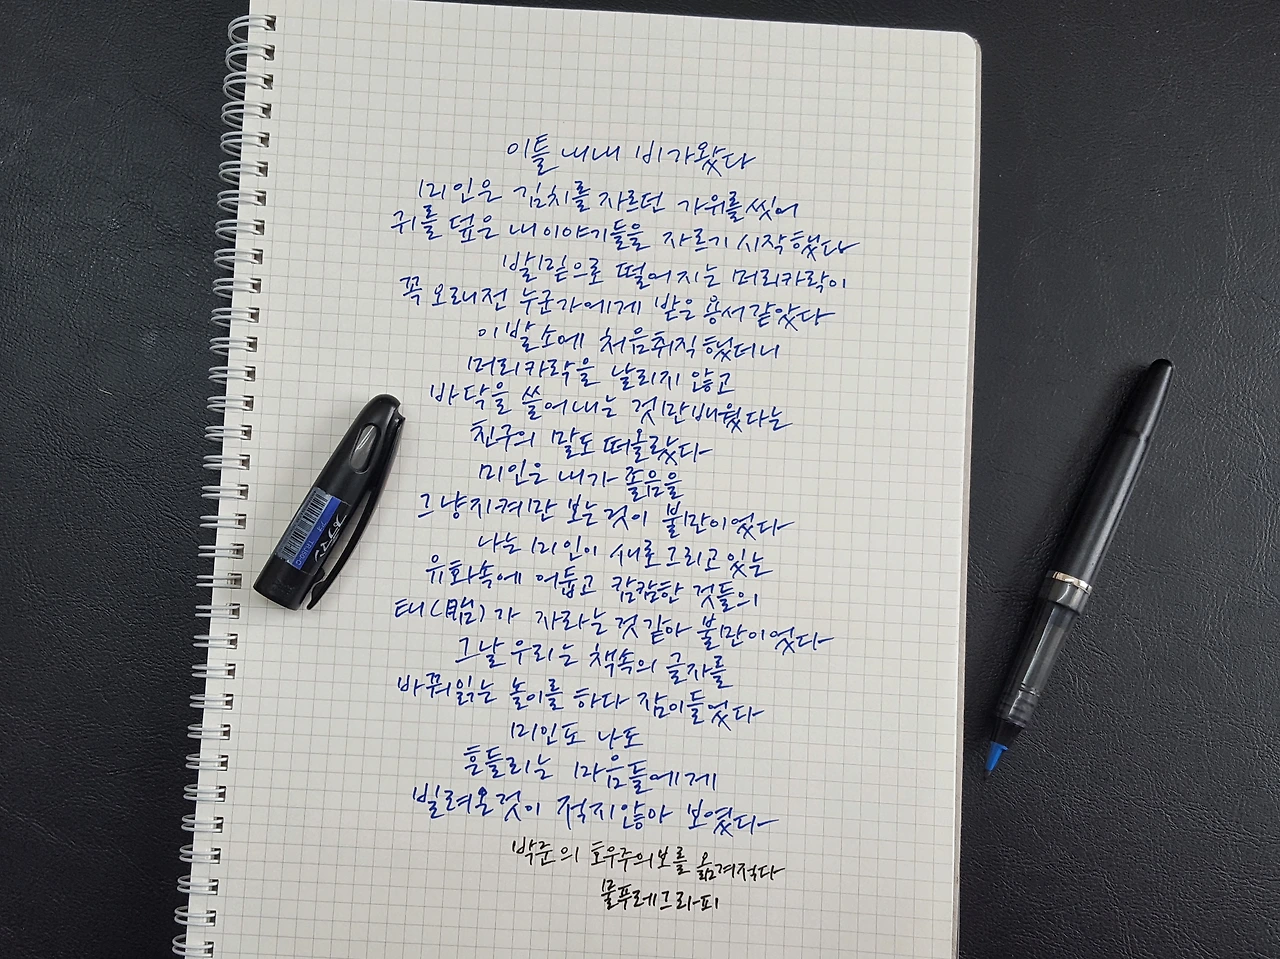 이틀 내내 비가왔다
미인은 김치를 자르던 가위를 씻어
귀를 덮은 내 이야기들을 자르기 시작했다
발밑으로 떨어지는 머리카락이
꼭 오래전 누군가에게 받은 용서같았다
이발소에 처음취직했더니
머리카락을 날리지 않고
바닥을 쓸어내는 것만배웠다는
친구의 말도 떠올랐다
미인은 내가 졸음을
그냥지켜만 보는것이 불만이었다
나는 미인이 새로그리고있는
유화속에 어둡고 캄캄한 것들의
태(胎)가 자라는것같아 불만이었다
그날우리는 책속의 글자를
바꿔읽는 놀이를 하다 잠이들었다
미인도 나도
흔들리는 마음들에게
빌려온것이 적지않아 보였다
박준의 호우주의보를 옮겨적다
물푸레그라피
プラマン